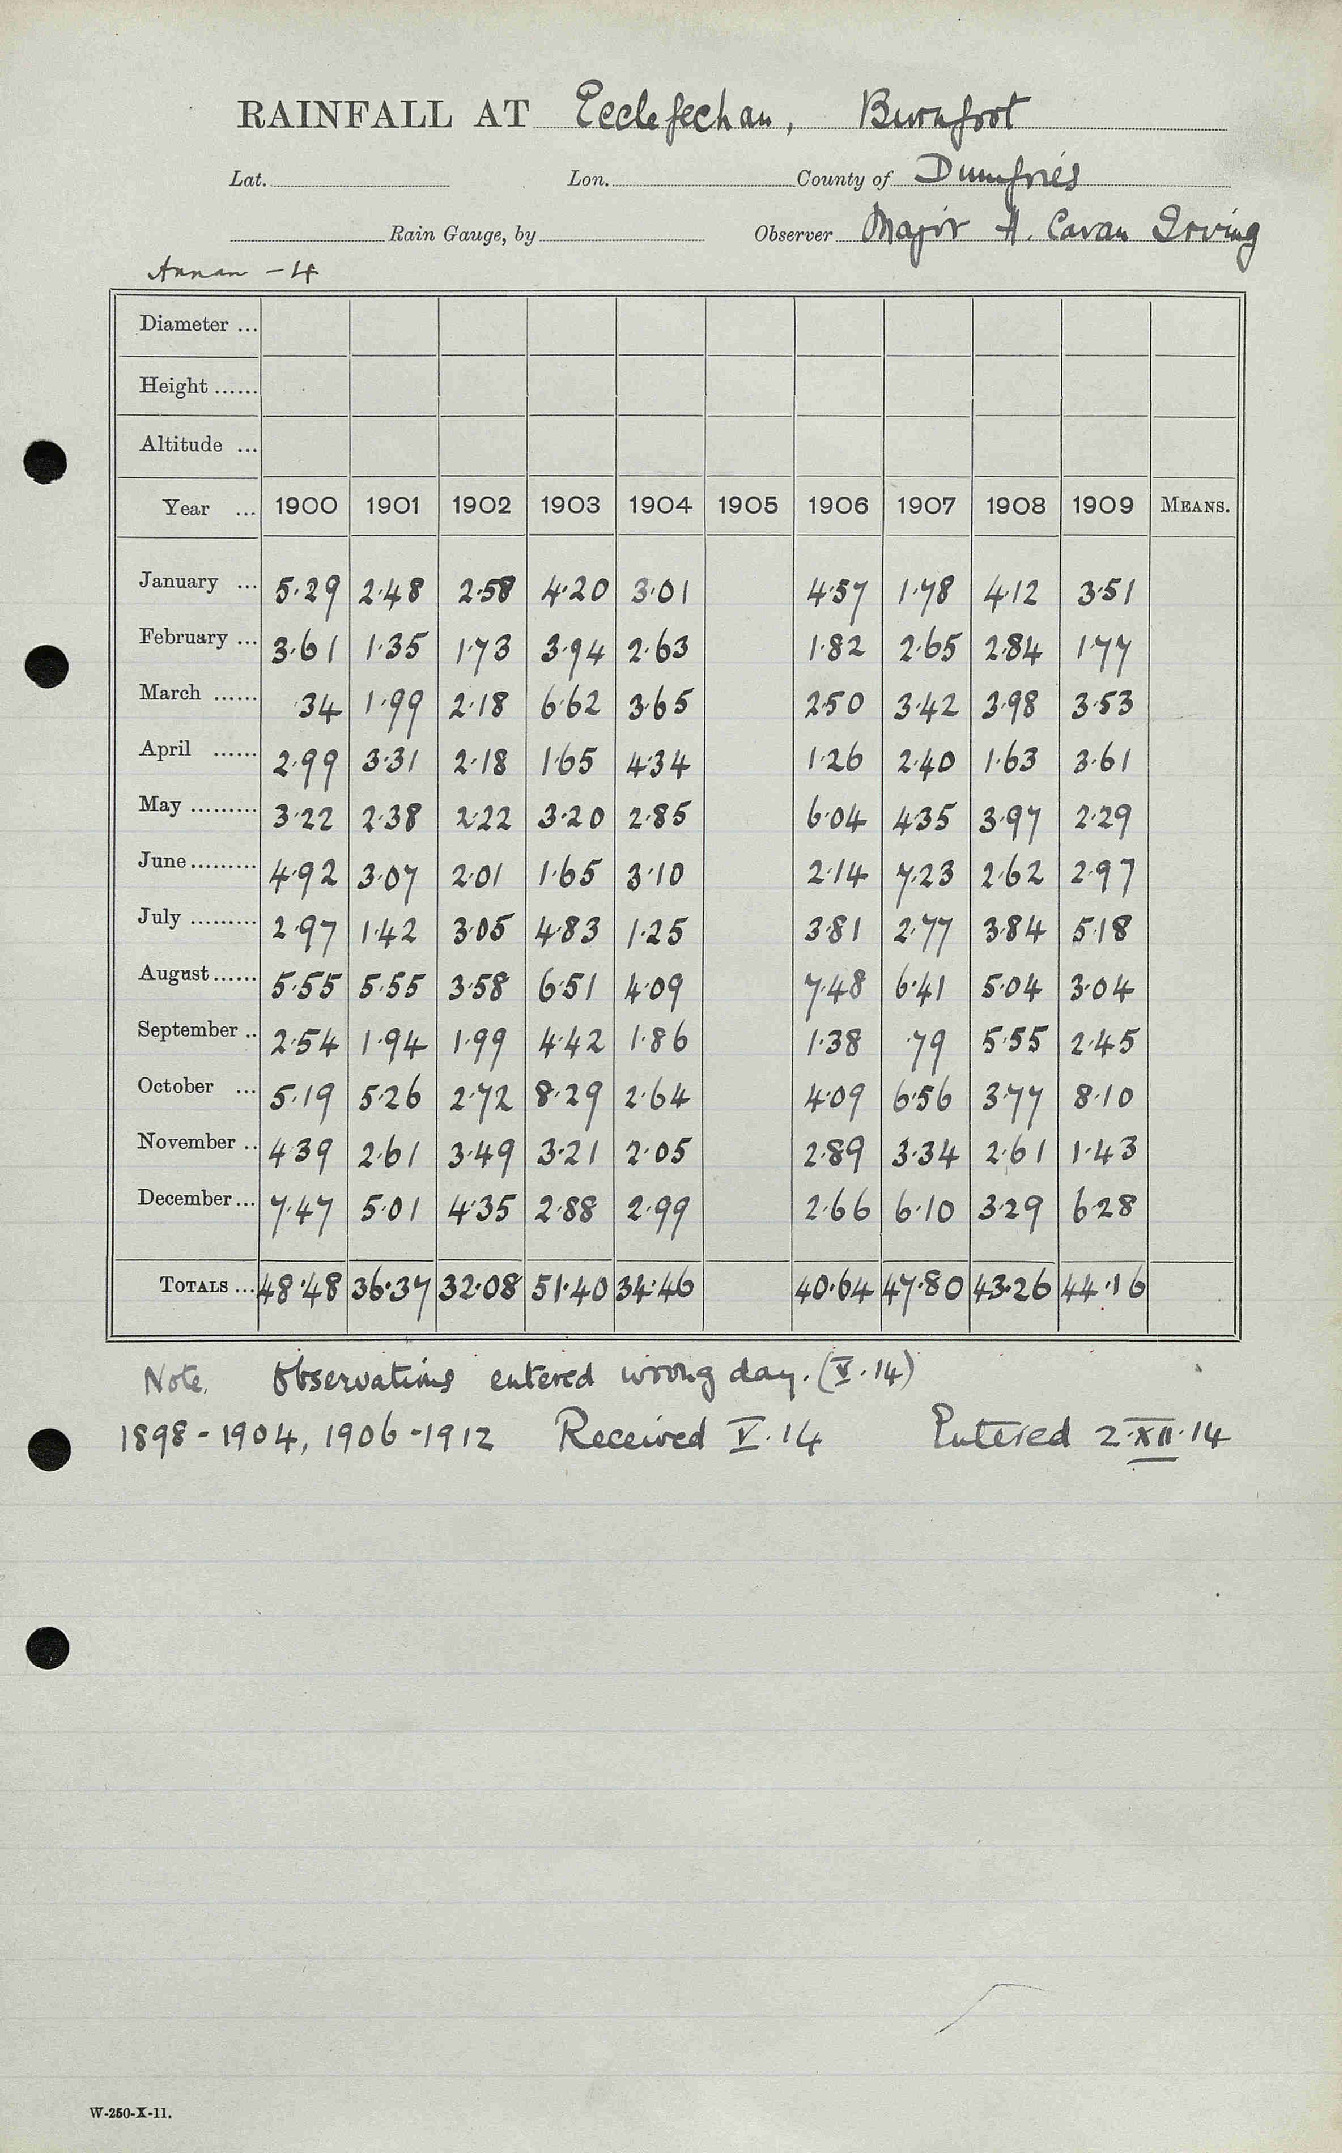 RAINFALL AT Ecclefechan, Burnfoot
Lat. Lon. County of Dumfries
Rain Gauge, by Observer Major A. Cavan Irving
Annan - 4
Diameter ...
Height ......
Altitude ...
Year ... 1900 1901 1902 1903 1904 1905 1906 1907 1908 1909 MEANS.
January ... 5.29 2.48 2.58 4.20 3.01 4.57 1.78 4.12 3.51
February ... 3.61 1.35 1.73 3.94 2.63 1.82 2.65 2.84 1.77
March ...... .34 1.99 2.18 6.62 3.65 2.50 3.42 3.98 3.53
April ...... 2.99 3.31 2.18 1.65 4.34 1.26 2.40 1.63 3.61
May ......... 3.22 2.38 2.22 3.20 2.85 6.04 4.35 3.97 2.29
June ......... 4.92 3.07 2.01 1.65 3.10 2.14 7.23 2.62 2.97
July ......... 2.97 1.42 3.05 4.83 1.25 3.81 2.77 3.84 5.18
August ...... 5.55 5.55 3.58 6.51 4.09 7.48 6.41 5.04 3.04
September .. 2.54 1.94 1.99 4.42 1.86 1.38 .79 5.55 2.45
October ... 5.19 5.26 2.72 8.29 2.64 4.09 6.56 3.77 8.10
November .. 4.39 2.61 3.49 3.21 2.05 2.89 3.34 2.61 1.43
December ... 7.47 5.01 4.35 2.88 2.99 2.66 6.10 3.29 6.28
TOTALS ... 48.48 36.37 32.08 51.40 34.46 40.64 47.80 43.26 44.16
Note. Observations entered wrong day. (V.14)
1898-1904, 1906-1912 Received V.14 Entered 2.XII.14
W-250-X-11.